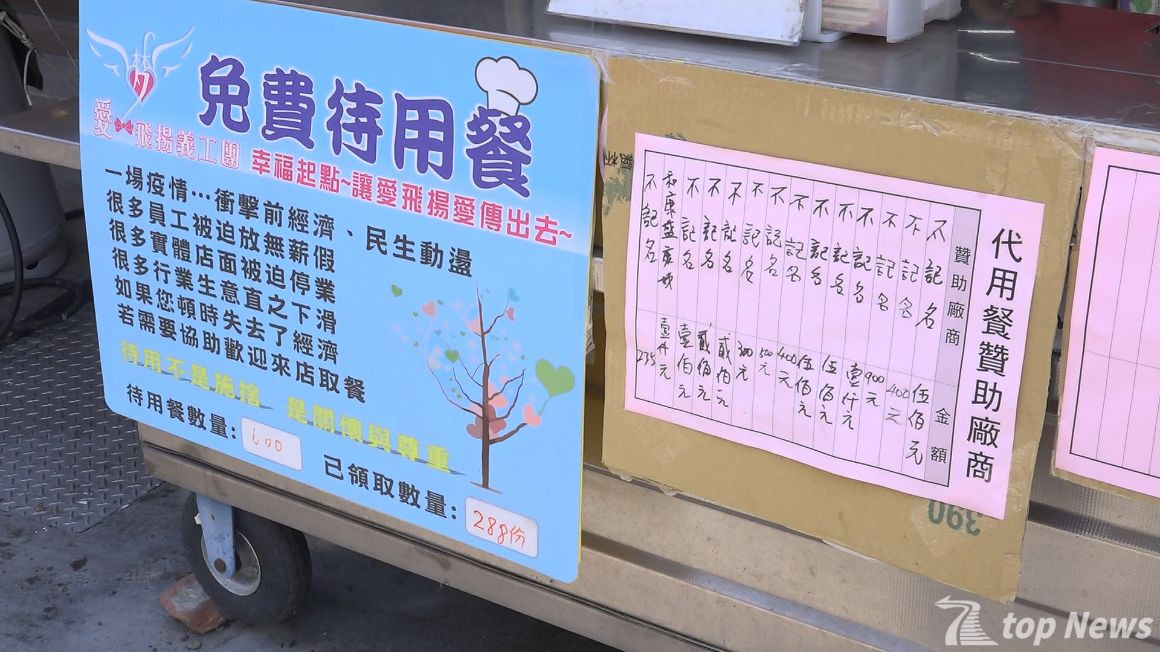 夢
愛
飛揚義工團
免費待用餐
幸福起點~讓愛飛揚愛傳出去~
一場疫情…衝擊前經濟、民生動盪
很多員工被迫放無薪假
很多實體店面被迫停業
很多行業生意直之下滑
如果您頓時失去了經濟
若需要協助歡迎來店取餐
待用不是施捨 是關懷與尊重
待用餐數量: 600
已領取數量: 288份
代用餐贊助廠商
贊助廠商 金額
不記名 伍佰元
不記名 400元
不記名 900元
不記名 壹仟元
不記名 伍佰元
不記名 伍佰元
不記名 400元
不記名 500元
不記名 300元
不記名 貳佰元
不記名 貳佰元
不記名 壹佰元
壹仟元
不記名 235
390
top News